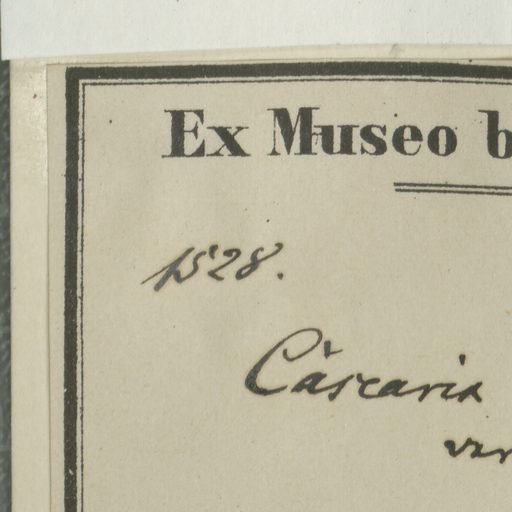 Ex Museo b
1528.
Cascaria
var